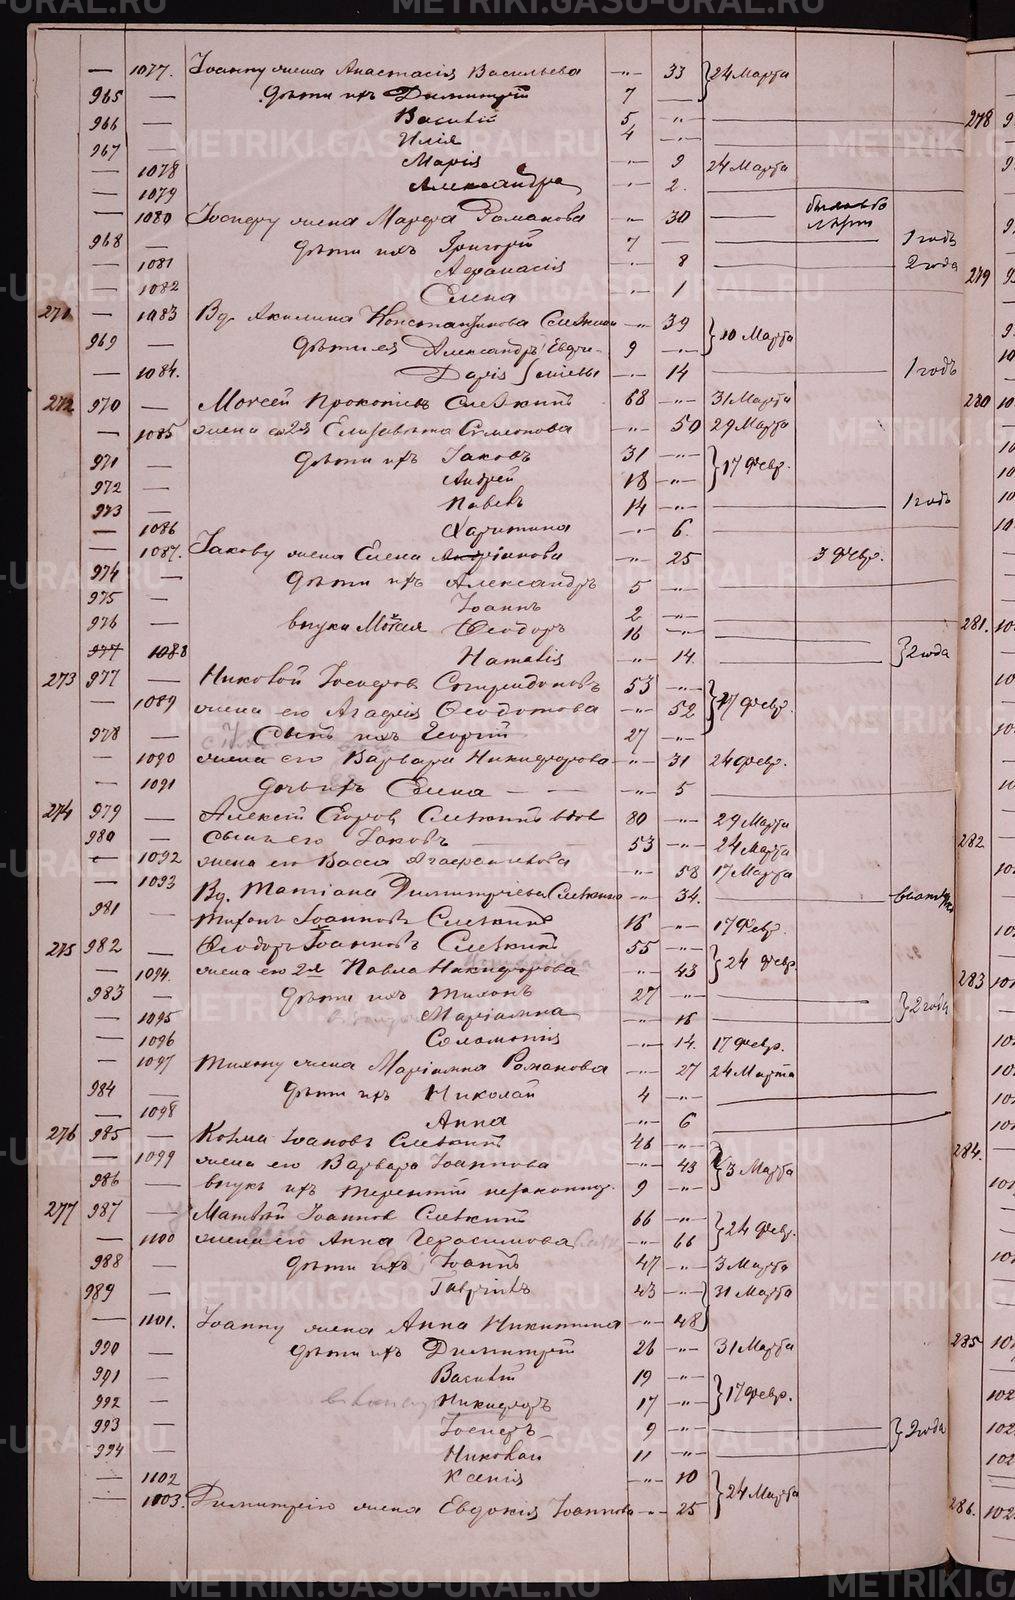 — 1077. Іоанну жена Анастасія Васильева —"— 33 } 24 Марта
965 — дѣти ихъ Димитрій 7 —
966 — Василій 5 —"—
967 — Илія 4 —"—
— 1078 Марія —"— 9 24 Марта
— 1079 Александра —"— 2.
— 1080 Іосифу жена Марфа Романова —"— 30
968 — дѣти ихъ Григорій 7 — 1 годъ
— 1081 Афанасія —"— 8 2 года
— 1082 Елена —"— 1
271 — 1083 Вд. Акилина Константинова —"— 39 } 10 Марта
969 — дѣти ея Александръ 9 —"—
— 1084. Дарія —"— 14 1 годъ
272 970 — Моисей Прокопіевъ 68 —"— 31 Марта
— 1085 жена его 2я Елизавета Симеонова —"— 50 29 Марта
971 — дѣти ихъ Іаковъ 31 —"— } 17 Февр.
972 — Андрей 18 —"—
973 — Павелъ 14 —"— 1 годъ
— 1086 Харитина —"— 6.
— 1087. Іакову жена Елена Андріянова —"— 25 3 Февр.
974 — дѣти ихъ Александръ 5 —"—
975 — Іоаннъ 2 —"—
976 — внуки Моѵсея Ѳеодоръ 16 —"—
977 1088 Наталія —"— 14. } 2 года
273 977 — Николай Іосифовъ 53 —"— } 17 Февр.
— 1089 жена его Агафія Ѳеодотова —"— 52
978 — Сынъ ихъ Георгій 27 —"—
— 1090 жена его Варвара Никифорова —"— 31 24 Февр.
— 1091 дочь ихъ Елена — — —"— 5
274 979 — Алексій Егоровъ вдов 80 —"— 29 Марта
980 — сынъ его Іаковъ 53 —"— 24 Марта
— 1092 жена его Васса —"— 58 17 Марта
— 1093 Вд. Татіана Димитріева —"— 34.
981 — Тихонъ Іоанновъ 16 —"— 17 Февр.
275 982 — Ѳеодоръ Іоанновъ 55 —"— } 24 Февр.
— 1094. жена его 2я Павла Никифорова —"— 43
983 — дѣти ихъ Тихонъ 27 —"— } 2 года
— 1095 Маріамна —"— 16
— 1096 Соломонія —"— 14. 17 Февр.
— 1097 Тихону жена Маріамна Романова —"— 27 24 Марта
984 — дѣти ихъ Николай 4 —"—
— 1098 Анна —"— 6
276 985 — Козма Іоановъ 46 —"— } 3 Марта
— 1099 жена его Варвара Іоаннова —"— 43
986 — внукъ ихъ Терентій незаконнор. 9 —"—
277 987 — Матвѣй Іоаннов 66 —"— } 24 Февр.
— 1100 жена его Анна Герасимова —"— 66
988 — дѣти ихъ Іоаннъ 47 —"— 3 Марта
989 — Гавріилъ 43 —"— } 31 Марта
— 1101. Іоанну жена Анна Никитина —"— 48
990 — дѣти ихъ Димитрій 26 —"— 31 Марта
991 — Василій 19 —"— } 17 Февр.
992 — Никифоръ 17 —"—
993 — Іосифъ 9 —"— } 2 года
994 — Николай 11 —"—
— 1102 Ксенія —"— 10 } 24 Марта
— 1103. Димитрію жена Евдокія Іоаннова —"— 25
278
279
280
281.
282
283
284.
285
286.
METRIKI.GASO-URAL.RU